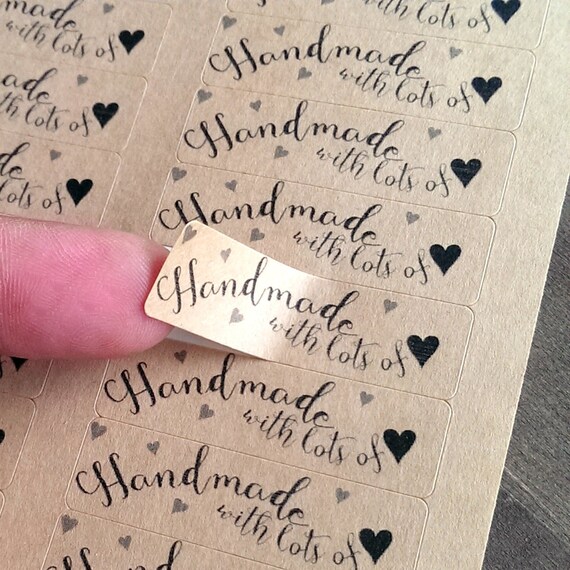 made
with lots of
Handmade
with lots of
with lots of
made
with lots of
Handmade
with lots of
made
with lots of
Handmade
with lots of
Handmade
with lots of
Handmade
with lots of
Handmade
with lots of
Handmade
with lots of
Handmade